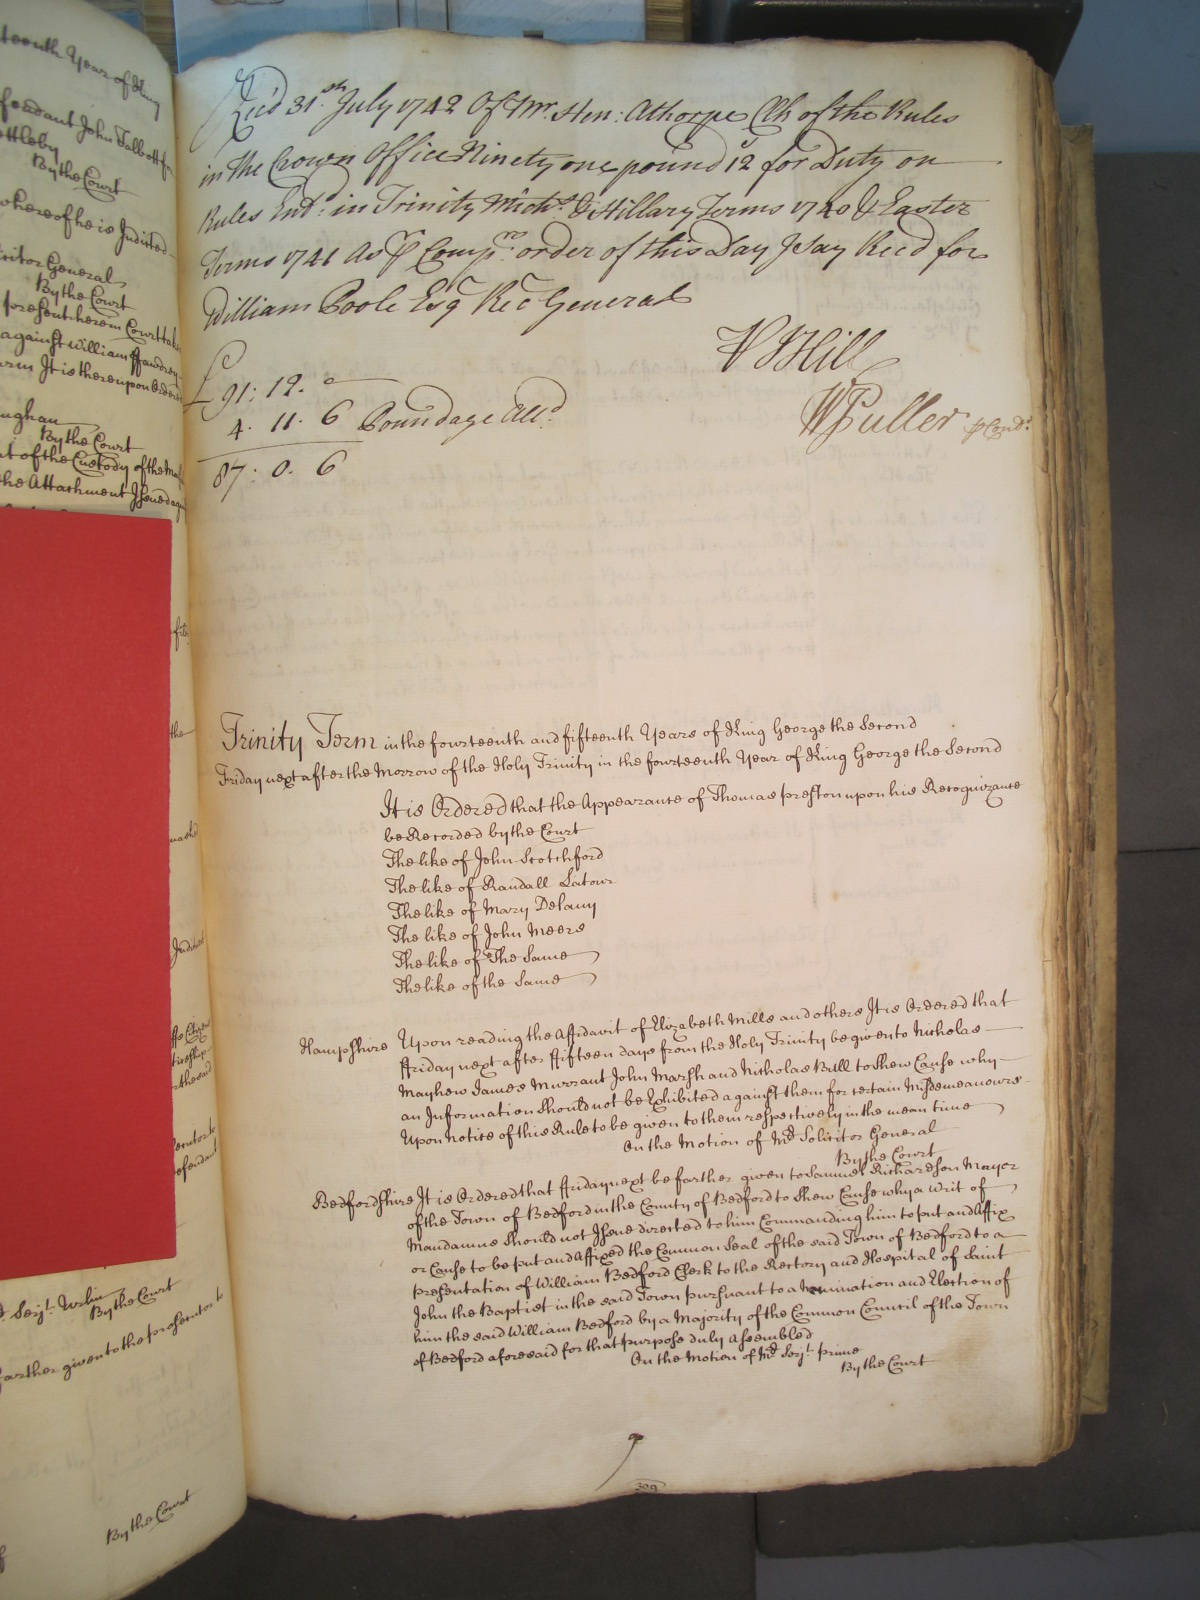 teenth Year of King
fendant John Talbott for
ottleby
By the Court
whereof he is Indicted
icitor General
By the Court
present here in Court tak
against William ffawdrey
It is thereupon Ordered
ingham
By the Court
t of the Custody of the
the Attachment Issued
the
Indict
rther said
efendant
Serjt. Urlin
By the Court
farther given to the prosecutor to
By the Court
Rec'd 31st. July 1742 Of Mr. Hen: Athorpe Clk of the Rules
in the Crown Office Ninety one pound 12s for Duty on
Rules Entd. in Trinity Michs. & Hillary Terms 1740 & Easter
Terms 1741 As p Comrs. order of this Day I Say Recd for
William Poole Esqr Rec General
£ 91: 12. –
4. 11. 6 Poundage Alld.
87: 0. 6
W Hill
W Puller p Cont.
Trinity Term in the fourteenth and fifteenth Years of King George the Second
Friday next after the Morrow of the Holy Trinity in the fourteenth Year of King George the Second
It is Ordered that the Appearance of Thomas preston upon his Recognizance
be Recorded by the Court
The like of John Scotchford
The like of Randall Latour
The like of Mary Delany
The like of John Meers
The like of The Same
The like of the Same
Hampshire Upon reading the Affidavit of Elizabeth Mills and others It is Ordered that
ffriday next after ffifteen days from the Holy Trinity be given to Nicholas
Mayhew James Murrant John Marsh and Nicholas Bull to shew Cause why
an Information should not be Exhibited against them for certain Misdemeanours
Upon notice of this Rule to be given to them respectively in the mean time
On the Motion of Mr. Solicitor General
By the Court
Bedfordshire It is Ordered that ffriday next be farther given to Samuel Richardson Mayor
of the Town of Bedford in the County of Bedford to shew Cause why a Writ of
Mandamus should not Issue directed to him Commanding him to put and Affix
or Cause to be put and Affixed the Common Seal of the said Town of Bedford to a
presentation of William Bedford Clerk to the Rectory and Hospital of Saint
John the Baptist in the said Town pursuant to a Nomination and Election of
him the said William Bedford by a Majority of the Common Council of the Town
of Bedford aforesaid for that purpose duly assembled
On the Motion of Mr. Serjt. prime
By the Court
309